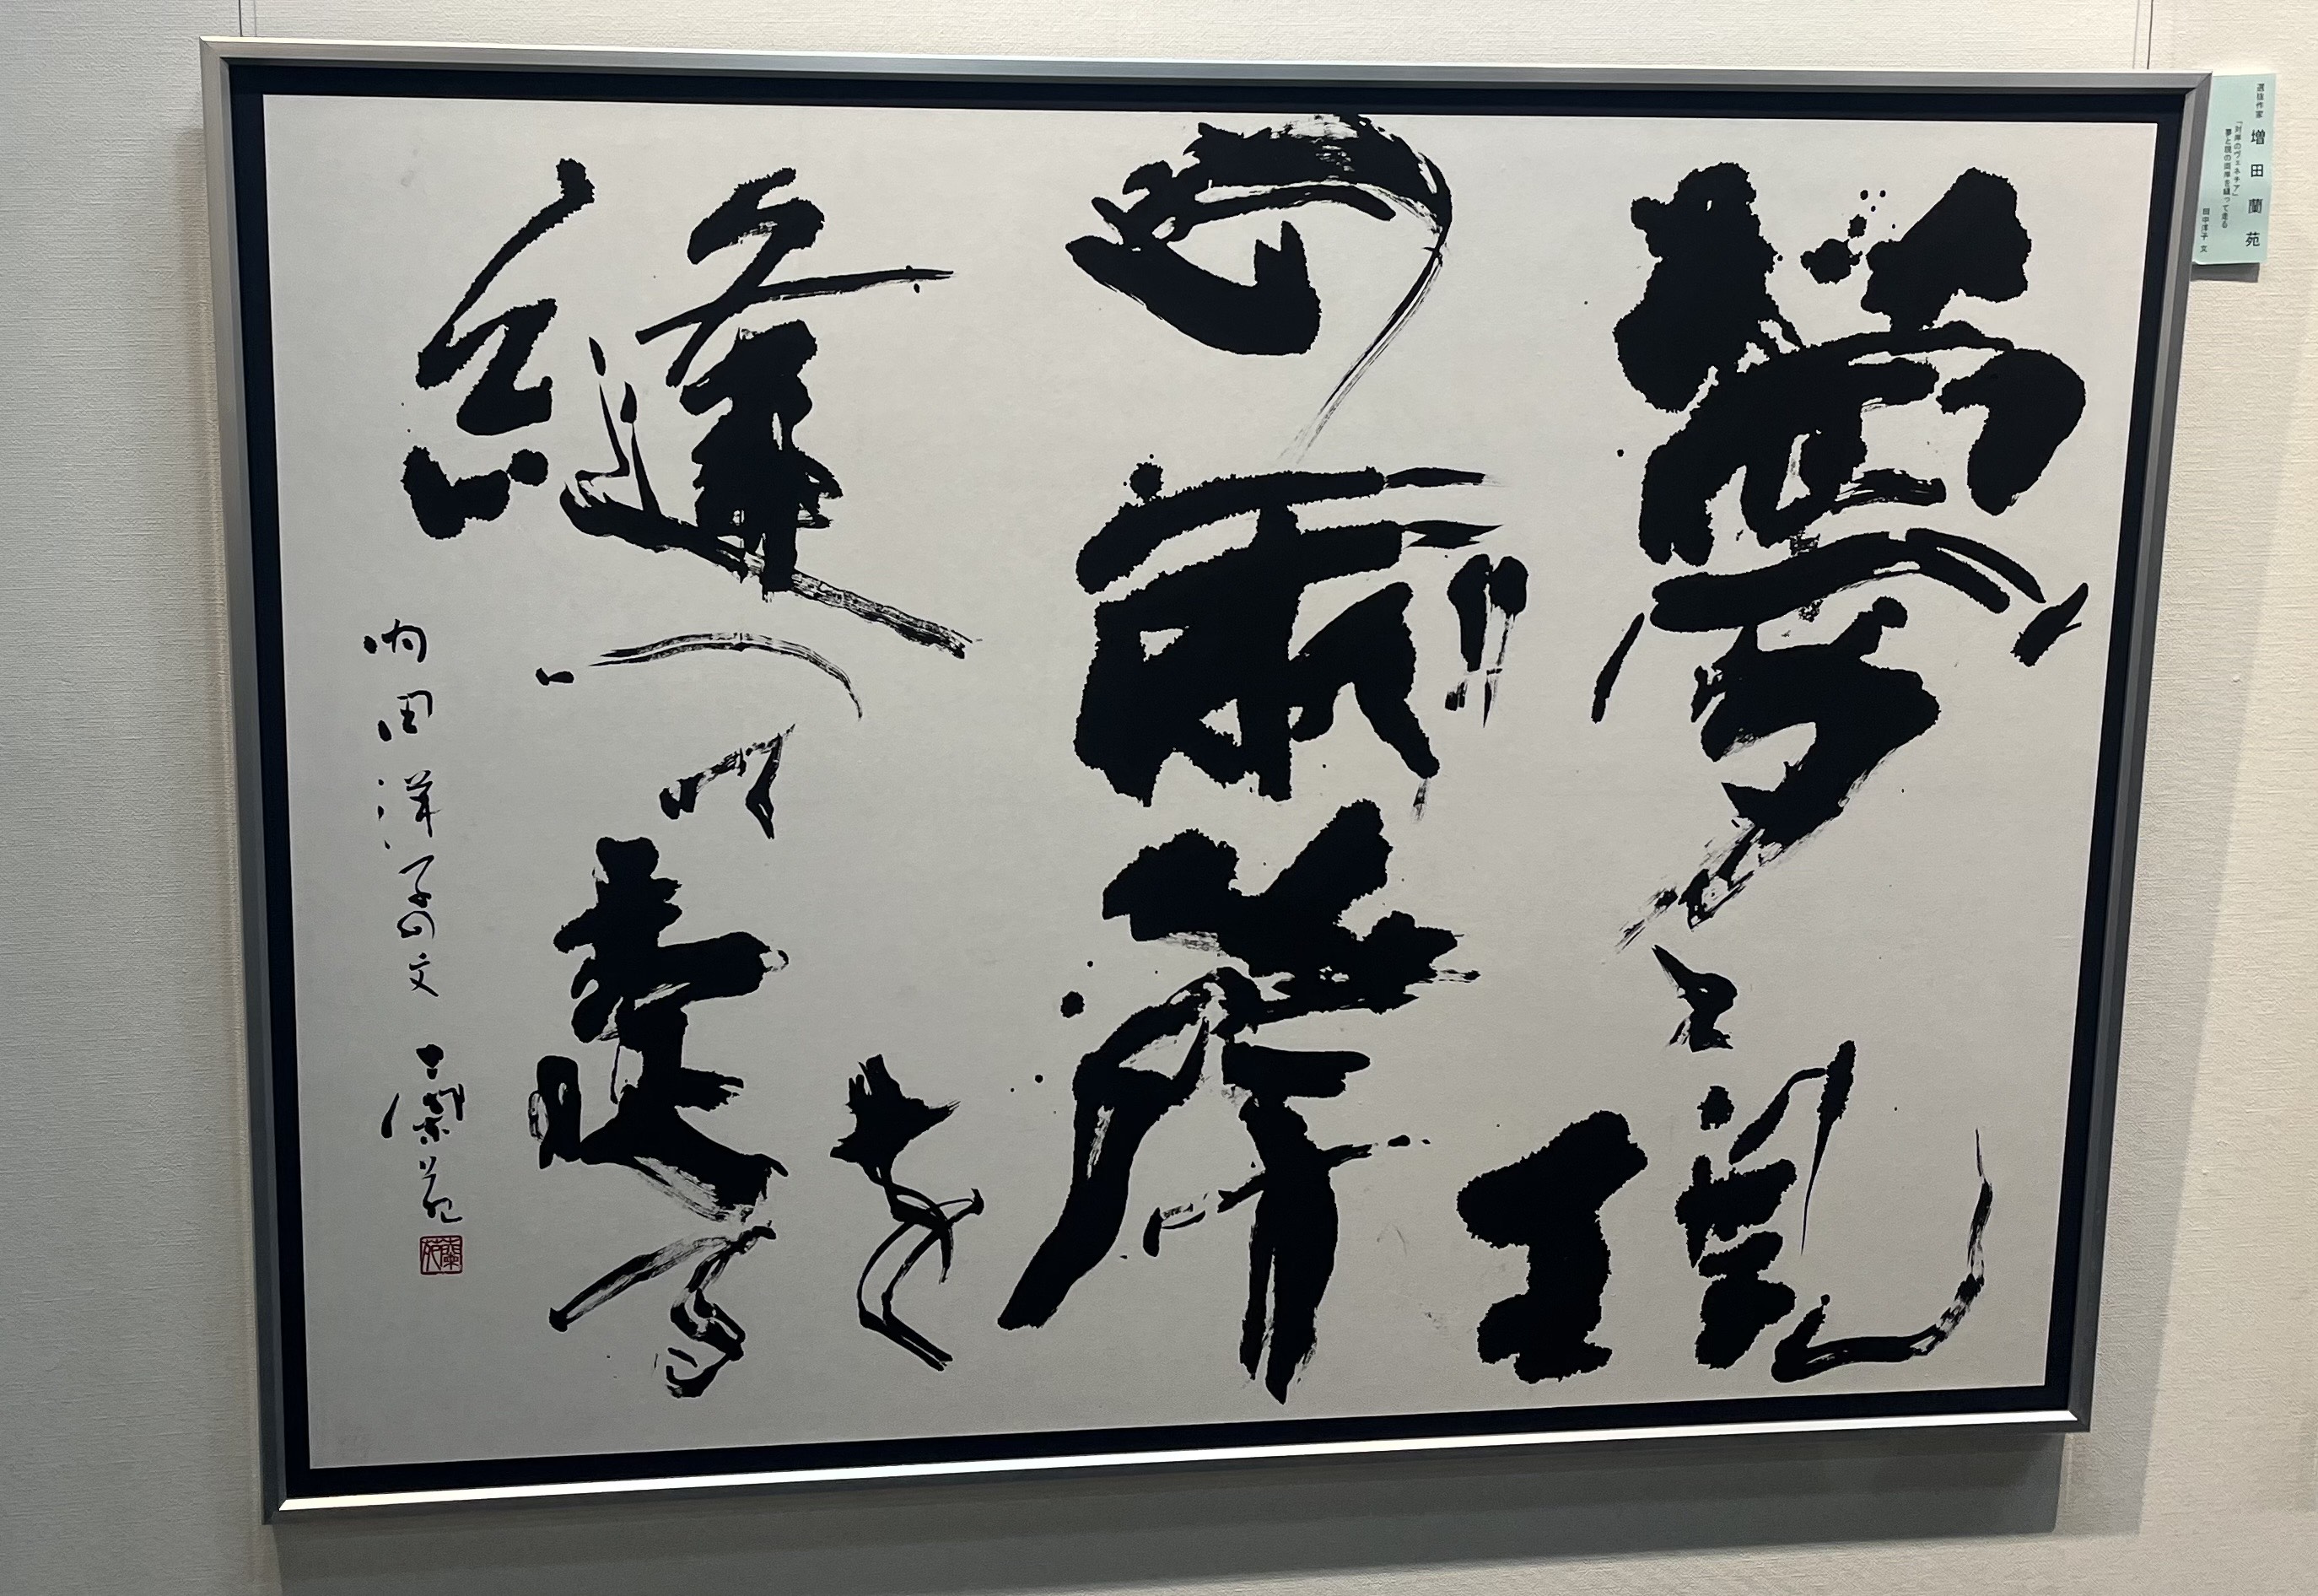 選抜作家 増田蘭苑
「対岸のヴェネチア」
夢と現の両岸を縫って走る
洋子 文
夢と現
の両岸を
縫って走る
内田洋子の文 蘭苑
蘭苑